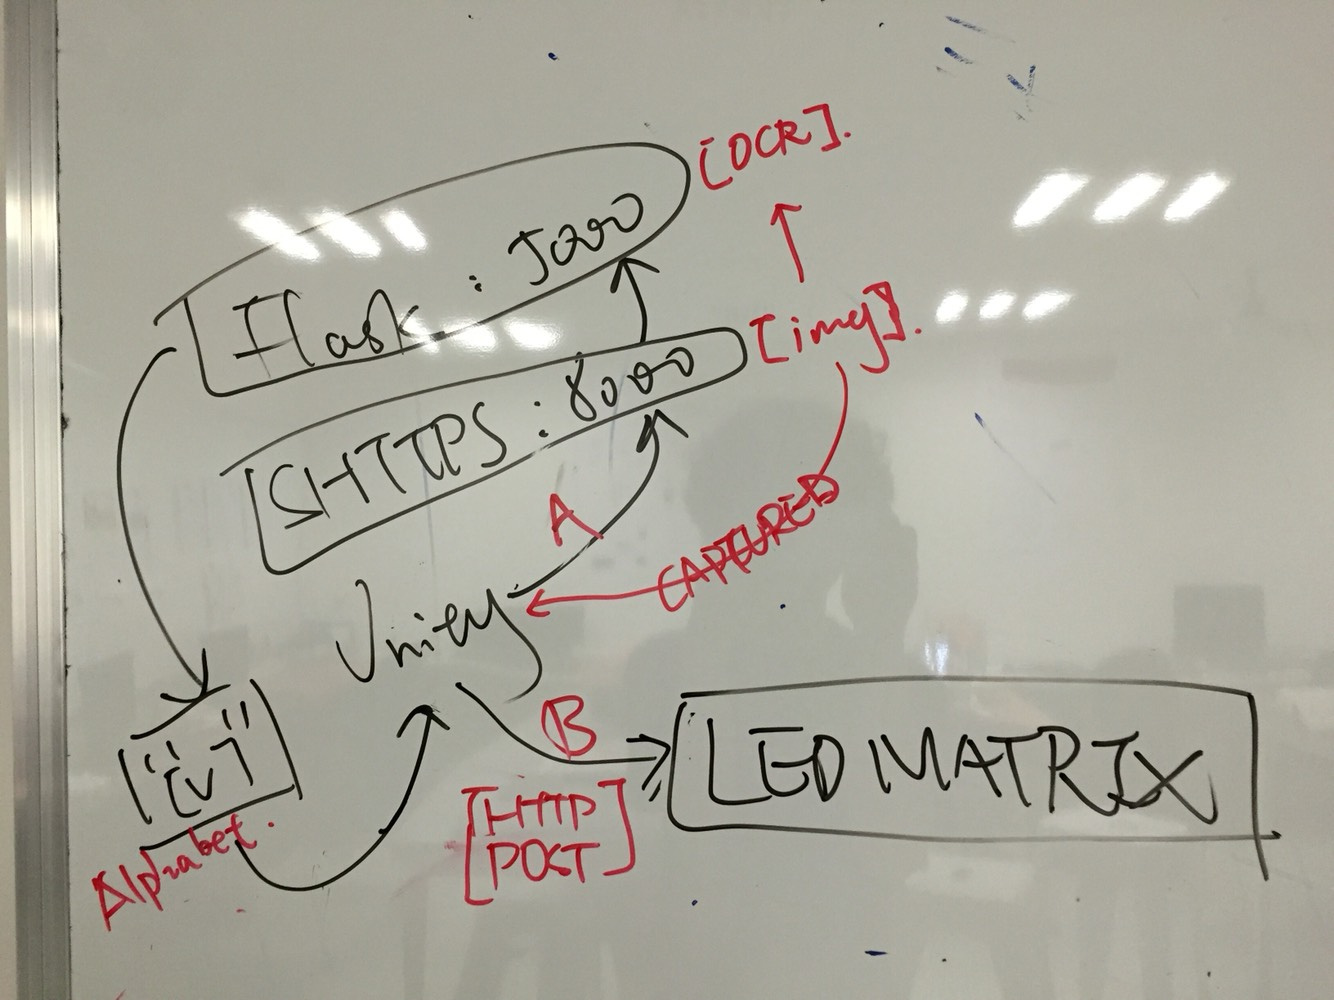 [OCR].
Flask : 5000
[img].
SHTTPS : 8000
A
CAPTURED
Unity
B
LED MATRIX
[HTTP
POST]
Alphabet.